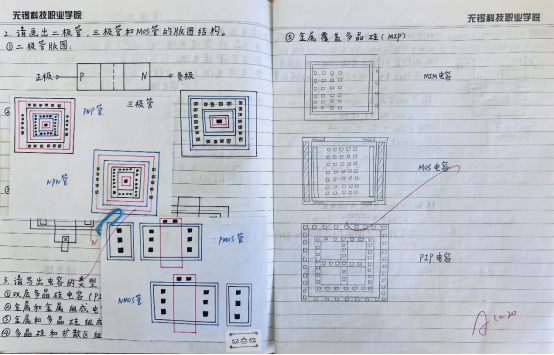 无锡科技职业学院
2. 请画出二极管,三极管和MOS管的版图结构。
①二极管版图:
正极 P N 负极
三极管
PNP管
NPN管
N
PMOS管
NMOS管
3. 请写出电容的类型
①双层多晶硅电容(PI
②金属和金属组成电
③金属和多晶硅组成
④多晶硅和扩散区组
无锡科技职业学院
⑤金属覆盖多晶硅(MIP)
MIM电容
MOS电容
PIP电容
A